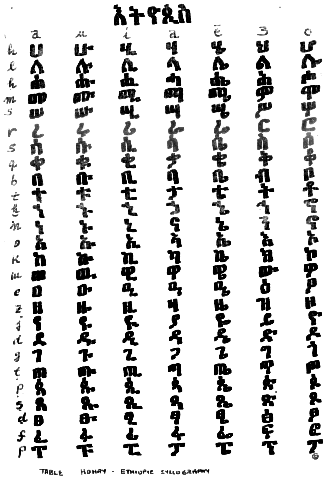 ኢትዮጲስ
a u i a ē 3 o
h ሀ ሁ ሂ ሃ ሄ ህ ሆ
l ለ ሉ ሊ ላ ሌ ል ሎ
h ሐ ሑ ሒ ሓ ሔ ሕ ሖ
m መ ሙ ሚ ማ ሜ ም ሞ
s ሠ ሡ ሢ ሣ ሤ ሥ ሦ
r ረ ሩ ሪ ራ ሬ ር ሮ
s ሰ ሱ ሲ ሳ ሴ ስ ሶ
q ቀ ቁ ቂ ቃ ቄ ቅ ቆ
b በ ቡ ቢ ባ ቤ ብ ቦ
t ተ ቱ ቲ ታ ቴ ት ቶ
h ኀ ኁ ኂ ኃ ኄ ኅ ኆ
n ነ ኑ ኒ ና ኔ ን ኖ
አ ኡ ኢ ኣ ኤ እ ኦ
k ከ ኩ ኪ ካ ኬ ክ ኮ
w ወ ዉ ዊ ዋ ዌ ው ዎ
e ዐ ዑ ዒ ዓ ዔ ዕ ዖ
z ዘ ዙ ዚ ዛ ዜ ዝ ዞ
j የ ዩ ዪ ያ ዬ ይ ዮ
d ደ ዱ ዲ ዳ ዴ ድ ዶ
g ገ ጉ ጊ ጋ ጌ ግ ጎ
t ጠ ጡ ጢ ጣ ጤ ጥ ጦ
p ጰ ጱ ጲ ጳ ጴ ጵ ጶ
s ጸ ጹ ጺ ጻ ጼ ጽ ጾ
d ፀ ፁ ፂ ፃ ፄ ፅ ፆ
f ፈ ፉ ፊ ፋ ፌ ፍ ፎ
p ፐ ፑ ፒ ፓ ፔ ፕ ፖ
TABLE HOHAY - ETHIOPIC SYLLOGRAPHY